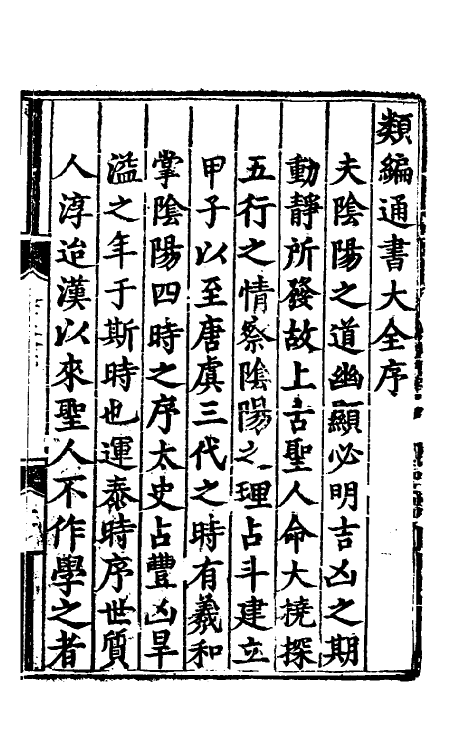 類編通書大全序
夫陰陽之道幽顯必明吉凶之期
動靜所發故上古聖人命大撓探
五行之情察陰陽之理占斗建立
甲子以至唐虞三代之時有羲和
掌陰陽四時之序太史占豐凶旱
溢之年于斯時也運泰時序世質
人淳迨漢以來聖人不作學之者